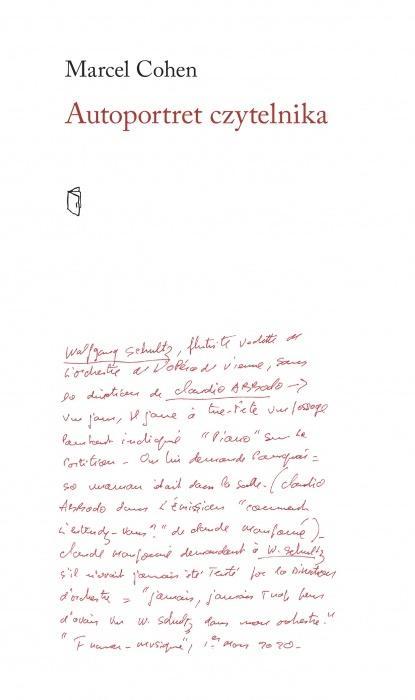 Marcel Cohen
Autoportret czytelnika
Wolfgang Schultz, flûtiste vedette de
l'orchestre de l'Opéra de Vienne, sous
la direction de Claudio ABBADO →
un jour, il joue à tue-tête un passage
pourtant indiqué "Piano" sur la
Partition – On lui demande Pourquoi =
sa maman était dans la salle. (Claudio
ABBADO dans l'Émission "comment
l'entendez-vous ?" de claude Maupomé) –
claude Maupomé demandant à W. Schultz
s'il n'avait jamais été Tenté par la Direction
d'orchestre = "jamais, jamais
d'avoir un W. Schultz dans mon orchestre."
"France-musique", 1er Mars 2020 –